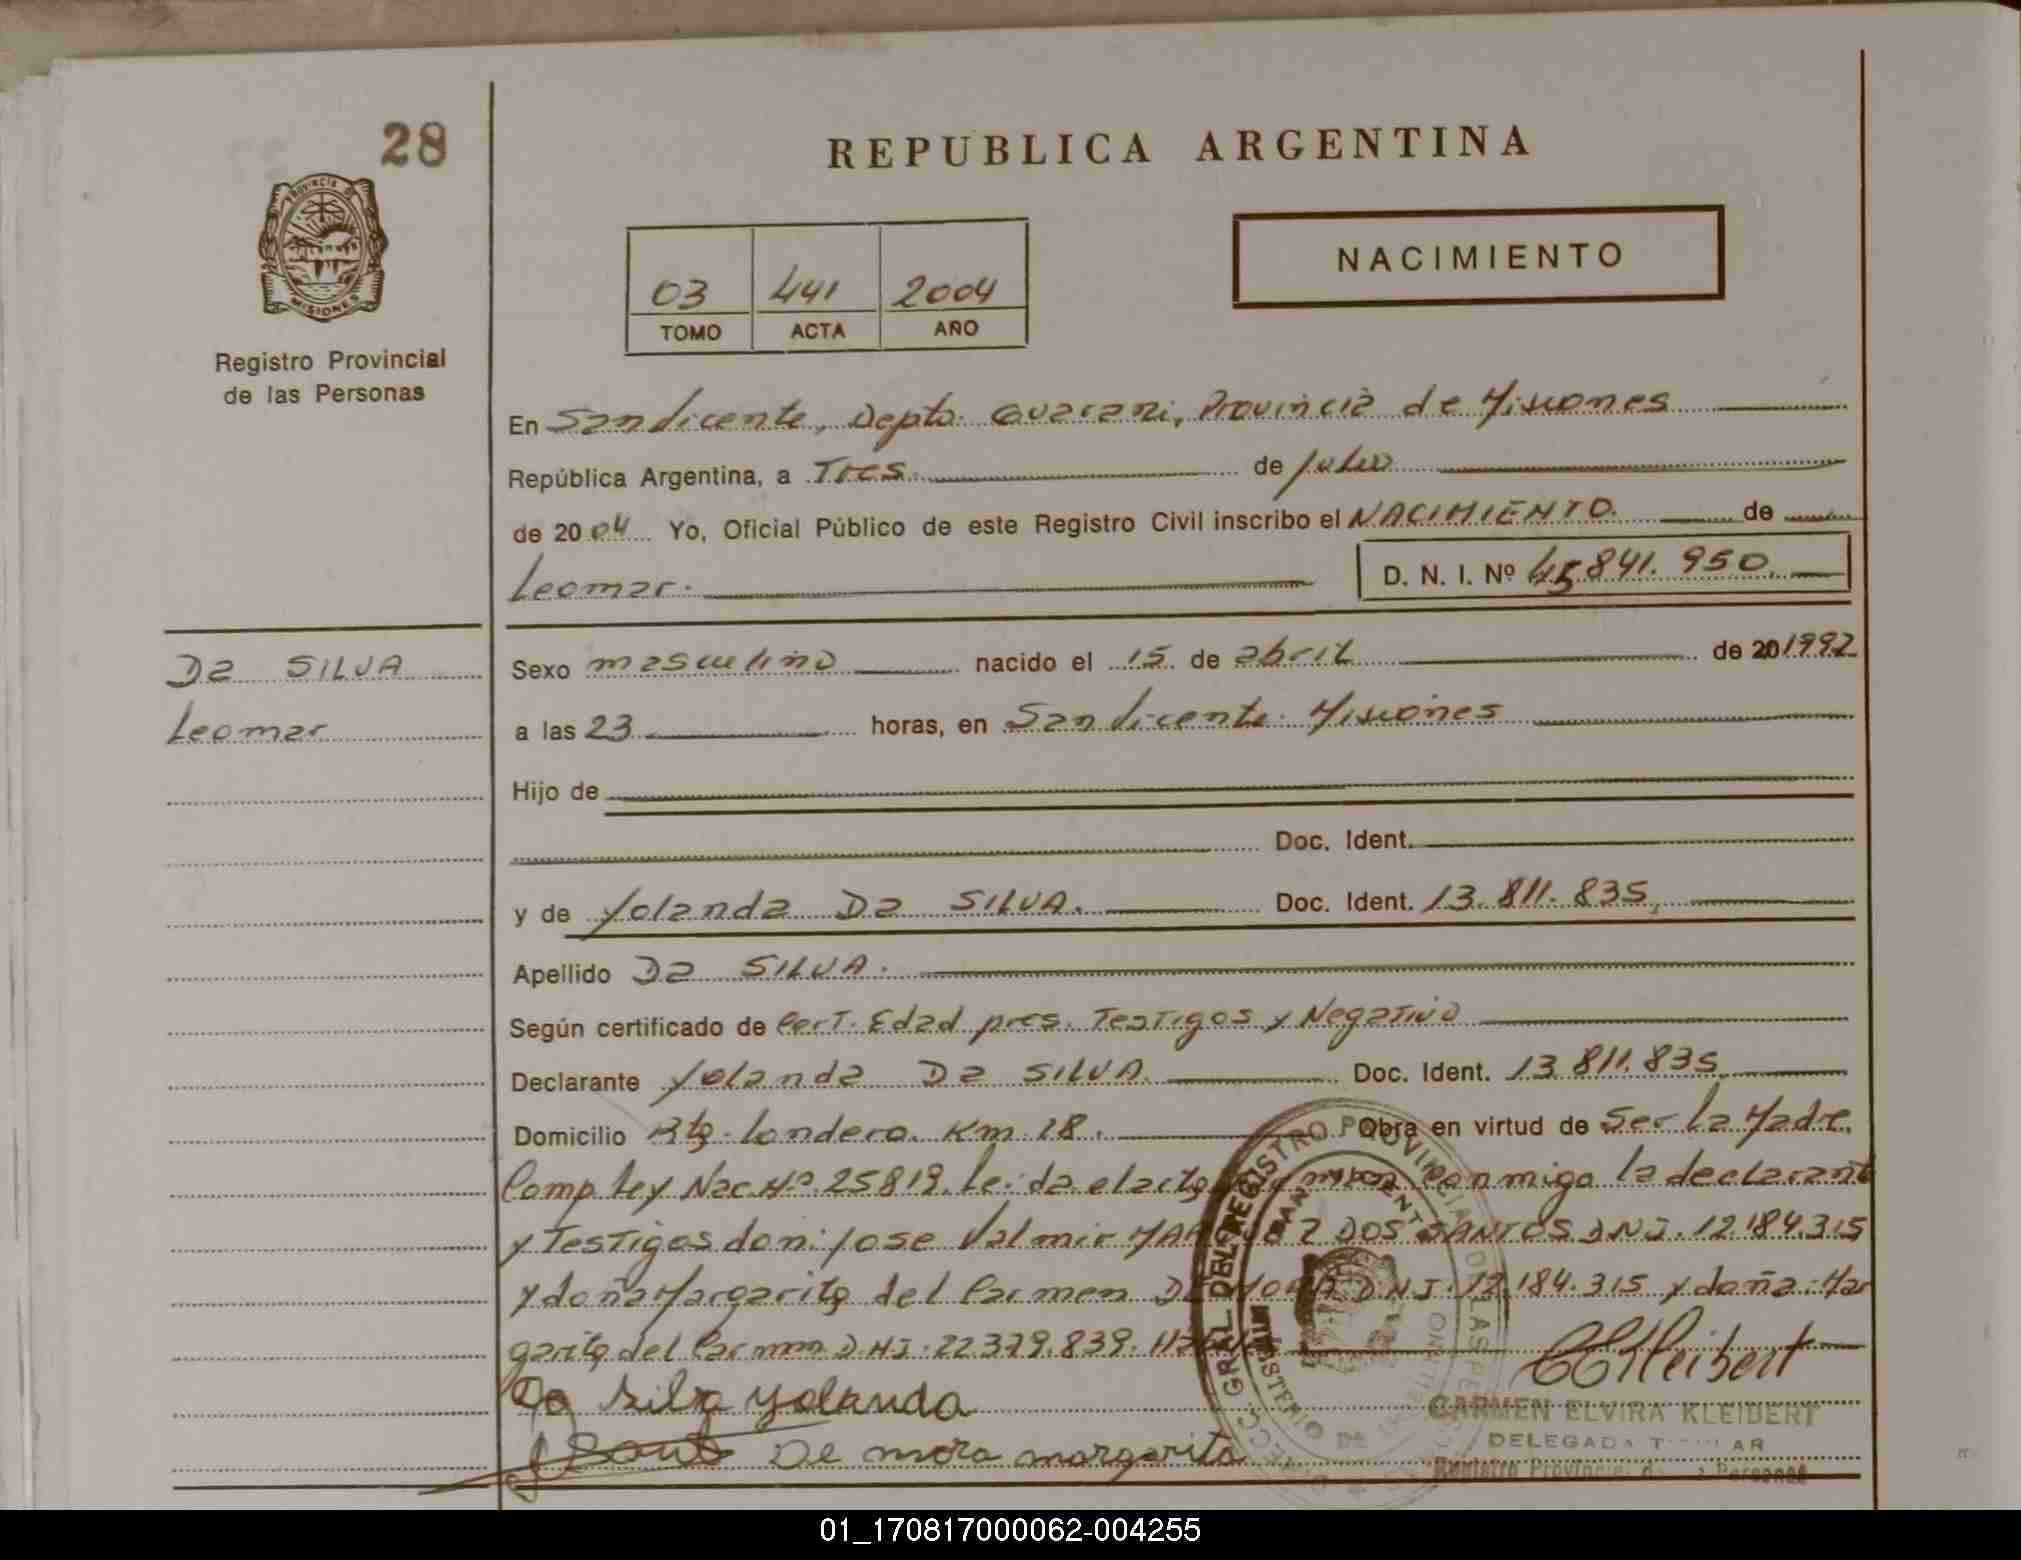 28
REPUBLICA ARGENTINA
PROVINCIA DE
MISIONES
Registro Provincial
de las Personas
03 441 2004
TOMO ACTA AÑO
NACIMIENTO
En San Vicente, Depto. Guarani, Provincia de Misiones
República Argentina, a Tres. de Julio
de 2004 Yo, Oficial Público de este Registro Civil inscribo el NACIMIENTO. de
Leomar. D. N. I. Nº 45.841.950.
Da SILVA
Leomar
Sexo masculino nacido el 15 de abril de 20 1992
a las 23 horas, en San Vicente. Misiones
Hijo de
Doc. Ident.
y de Yolanda Da SILVA. Doc. Ident. 13.811.835.
Apellido Da SILVA.
Según certificado de Cert. Edad pres. Testigos y Negativo
Declarante Yolanda Da SILVA. Doc. Ident. 13.811.835.
Domicilio Rtg. Londero. Km. 18. Obra en virtud de Ser la Madre.
Comp. Ley Nac. Nº 25819. Leida el acta conmigo la declarante
y Testigos don: Jose Valmir DOS SANTOS D.N.I. 12.184.315
y doña Margarita del Carmen DE D.N.I. 12.184.315 y doña: Mar
garita del Carmen D.N.I. 22.379.839.
Da Silva Yolanda
De mora margarita
CKleibert
CARMEN ELVIRA KLEIBERT
DELEGADA T AR
Registro Provincial d Personas
01_170817000062-004255